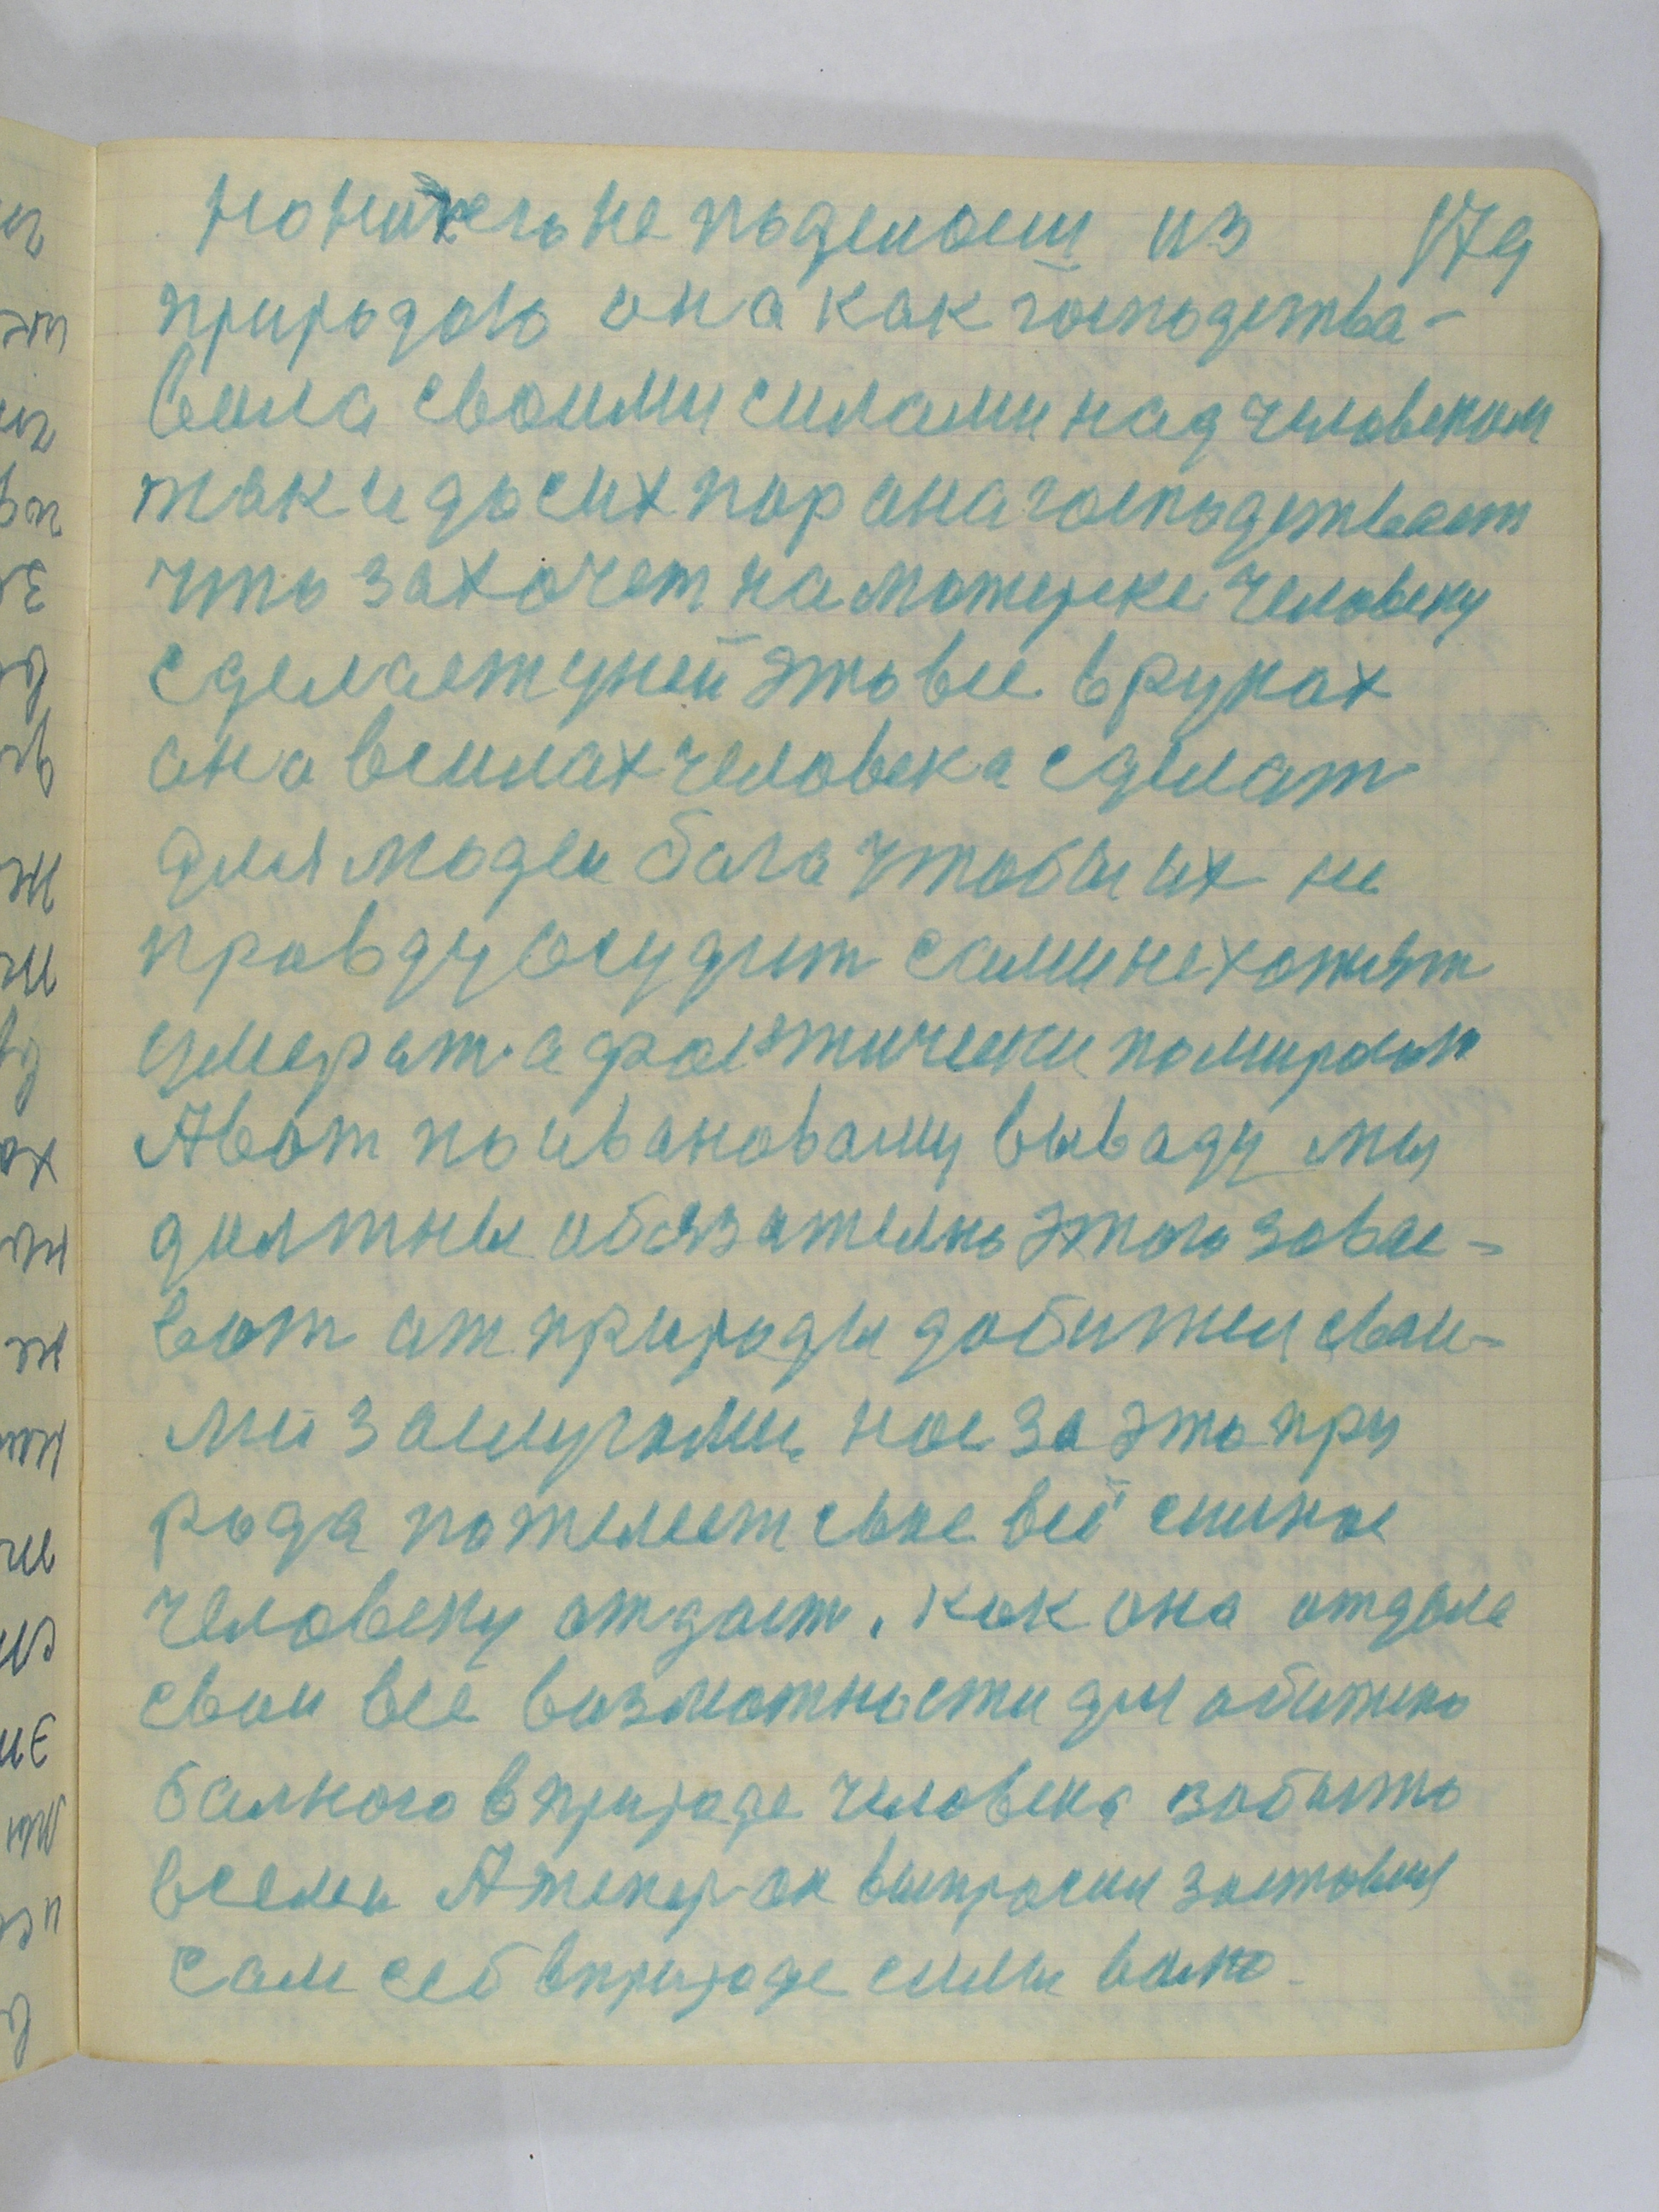 но ничего не поделаеш из 179
природаю она как господства-
вала своими силами над человеком
так и до сих пор она господствает
что захочет на моменте человеку
сделает у ней это все в руках
она в силах человека сделат
для людеи бога чтобы их не
правду осудит сами не хотят
умерат а фактически помирают
А вот по ивановаму вываду мы
должны обезателно этого завае-
ват ат природы добитися сваи-
ми заслугами нас за это при
рода пожелеет свае всё силное
человеку отдаст. как она отдала
сваи все вазможности для обижено
балного в природе человека забыто
всеми А тепер он выпросил заставил
сам себ в природе силы